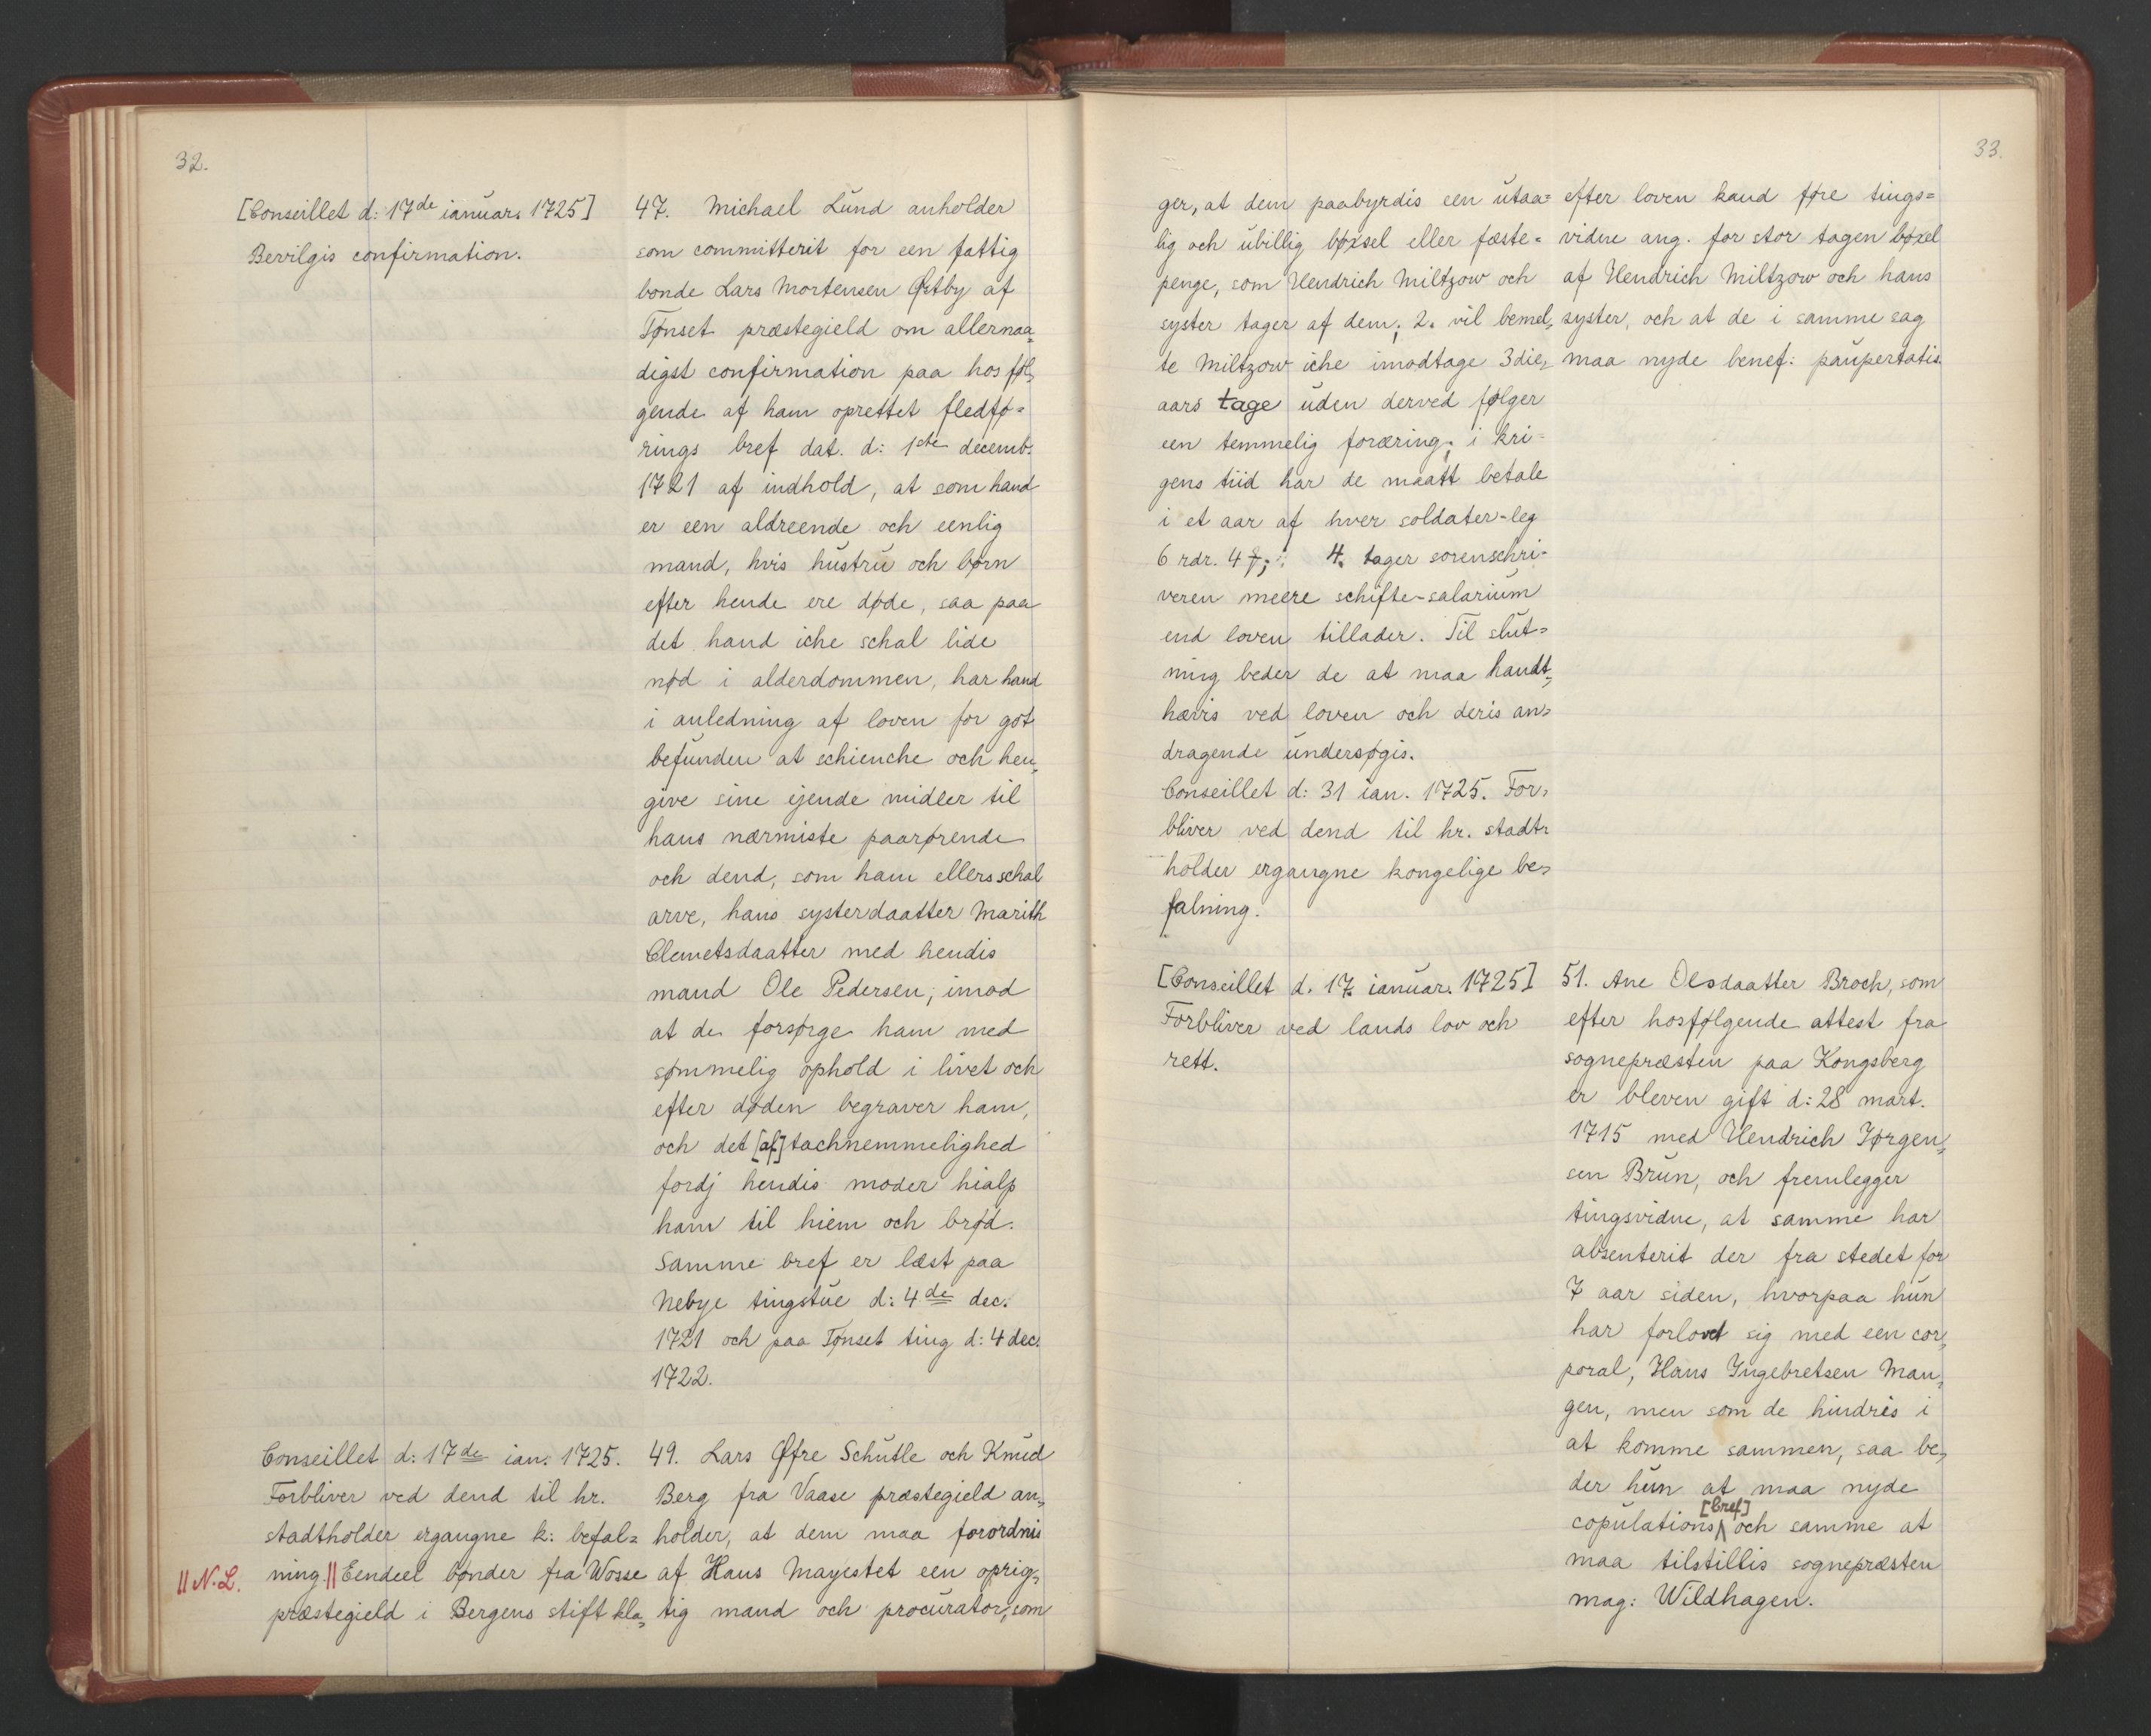 32.
[Conseillet d: 17de ianuar. 1725]
Bevilgis confirmation.
47. Michael Lund anholder
som committerit for een fattig
bonde Lars Mortensen Østby af
Tønset præstegield om allernaa=
digst confirmation paa hosføl=
gende af ham oprettet fledfø=
rings bref dat. d: 1ste decemb.
1721 af indhold, at som hand
er een aldreende och eenlig
mand, hvis hustru och børn
efter hende ere døde, saa paa
det hand iche schal lide
nød i alderdommen, har hand
i anledning af loven for got
befunden at schienche och hen=
give sine ejende midler til
hans nærmiste paarørende
och dend, som ham ellers schal
arve, hans systerdaatter Marith
Clemetsdaatter med hendis
mand Ole Pedersen, imod
at de forsørge ham med
sømmelig ophold i livet och
efter døden begraver ham,
och det [af] tachnemmelighed
fordj hendis moder hialp
ham til hiem och brød.
Samme bref er læst paa
Nebye tingstue d: 4de dec.
1721 och paa Tønset ting d: 4 dec.
1722.
Conseillet d: 17de ian. 1725.
Forbliver ved dend til hr.
stadtholder ergangne k: befal=
ning. || Eendeel bønder fra Wosse
|| N.L.
præstegield i Bergens stift kla=
49. Lars Øfre Schutle och Knud
Berg fra Vaase præstegield an=
holder, at dem maa forordnis
af Hans Mayestet een oprig=
tig mand och procurator, som
33.
ger, at dem paabyrdis een utaa=
lig och ubillig bøxsel eller fæste=
penge, som Hendrich Miltzow och
syster tager af dem; 2. vil bemel=
te Miltzow iche imodtage 3die=
aars tage uden derved følger
een temmelig foræring; i kri=
gens tiid har de maatt betale
i et aar af hver soldater-leg
6 rdr. 4 ; 4. tager sorenschri=
veren meere schifte-salarium
end loven tillader. Til slut=
ning beder de at maa handt=
hævis ved loven och deris an=
dragende undersøgis.
Conseillet d: 31 ian. 1725. For=
bliver ved dend til hr. stadt=
holder ergangne kongelige be=
falning.
efter loven kand føre tings=
vidne ang. for stor tagen bøxel
af Hendrich Miltzow och hans
syster, och at de i samme sag
maa nyde benef: paupertatis.
[Conseillet d. 17. ianuar. 1725]
Forbliver ved lands lov och
rett.
51. Ane Olsdaatter Broch, som
efter hosfølgende attest fra
sognepræsten paa Kongsberg
er bleven gift d: 28 mart.
1715 med Hendrich Jørgen=
sen Brun, och fremlegger
tingsvidne, at samme har
absenterit der fra stedet for
7 aar siden, hvorpaa hun
har forlovet sig med een cor=
poral, Hans Ingebretsen Man=
gen, men som de hindris i
at komme sammen, saa be=
der hun at maa nyde
copulations [bref] och samme at
maa tilstillis sognepræsten
mag: Wildhagen.